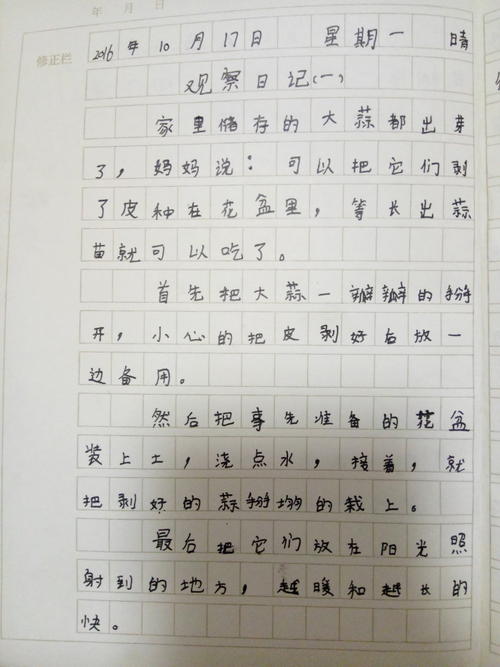 年 月 日
修正栏
2016年10月17日 星期一 晴
观察日记(一)
家里储存的大蒜都出芽
了，妈妈说：可以把它们剥
了皮种在花盆里，等长出蒜
苗就可以吃了。
首先把大蒜一瓣瓣的掰
开，小心的把皮剥好后放一
边备用。
然后把事先准备的花盆
装上土，浇点水，接着，就
把剥好的蒜掰均的栽上。
最后把它们放在阳光照
射到的地方，越暖和越长的
快。